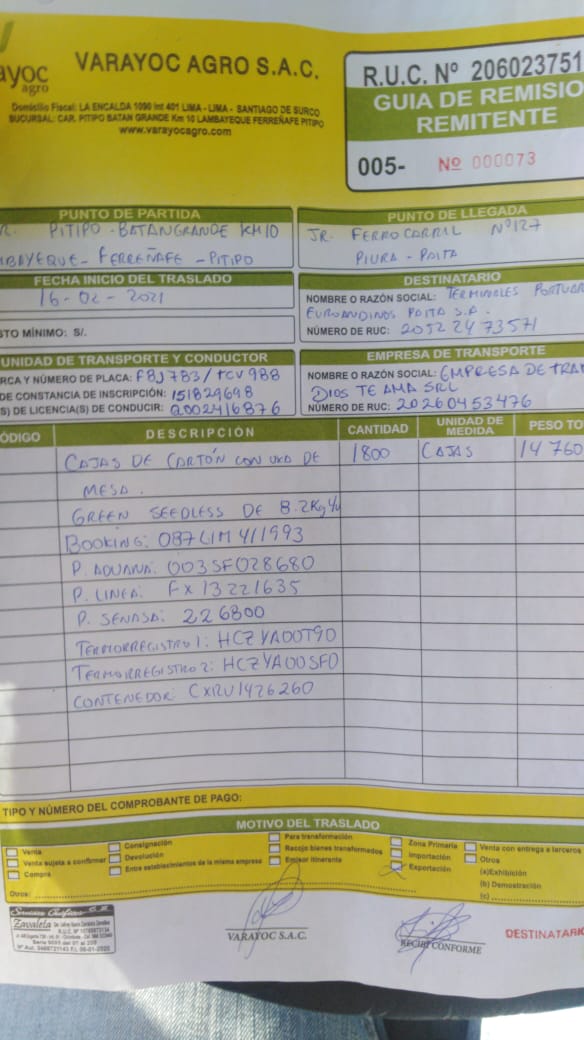 ayoc
agro
VARAYOC AGRO S.A.C.
Domicilio Fiscal: LA ENCALDA 1090 Int 401 LIMA - LIMA - SANTIAGO DE SURCO
SUCURSAL: CAR. PITIPO BATAN GRANDE Km 10 LAMBAYEQUE FERREÑAFE PITIPO
www.varayocagro.com
R.U.C. Nº 206023751
GUIA DE REMISIO
REMITENTE
005- Nº 000073
PUNTO DE PARTIDA
R. PITIPO - BATANGRANDE KM10
MBAYEQUE - FERREÑAFE - PITIPO
PUNTO DE LLEGADA
JR. FERROCARRIL Nº127
PIURA - PAITA
FECHA INICIO DEL TRASLADO
16-02-2021
STO MÍNIMO: S/.
DESTINATARIO
NOMBRE O RAZÓN SOCIAL: TERMINALES PORTUAR
EUROANDINOS PAITA S.A.
NÚMERO DE RUC: 20522473571
UNIDAD DE TRANSPORTE Y CONDUCTOR
RCA Y NÚMERO DE PLACA: F8J783/TCV988
DE CONSTANCIA DE INSCRIPCIÓN: 151829698
S) DE LICENCIA(S) DE CONDUCIR: Q002416876
EMPRESA DE TRANSPORTE
NOMBRE O RAZÓN SOCIAL: EMPRESA DE TRAN
DIOS TE AMA SRL
NÚMERO DE RUC: 20260453476
ÓDIGO DESCRIPCIÓN CANTIDAD UNIDAD DE MEDIDA PESO TO
CAJAS DE CARTÓN CON UVA DE 1800 CAJAS 14760
MESA.
GREEN SEEDLESS DE 8.2Kg
BOOKING: 087LIM411993
P. ADUANA: 003SF028680
P. LINEA: FX13221635
P. SENASA: 226800
TERMORREGISTRO 1: HCZYA00T90
TERMORREGISTRO 2: HCZYA00SF0
CONTENEDOR: CXRU1426260
TIPO Y NÚMERO DEL COMPROBANTE DE PAGO:
MOTIVO DEL TRASLADO
Venta
Venta sujeta a confirmar
Compra
Consignación
Devolución
Entre establecimientos de la misma empresa
Para transformación
Recojo bienes transformados
Emisor itinerante
Zona Primaria
Importación
Exportación
Venta con entrega a terceros
Otros
(a)Exhibición
(b) Demostración
(c)
Otros:
Zavaleta
VARAYOC S.A.C.
RECIBI CONFORME
DESTINATARIO